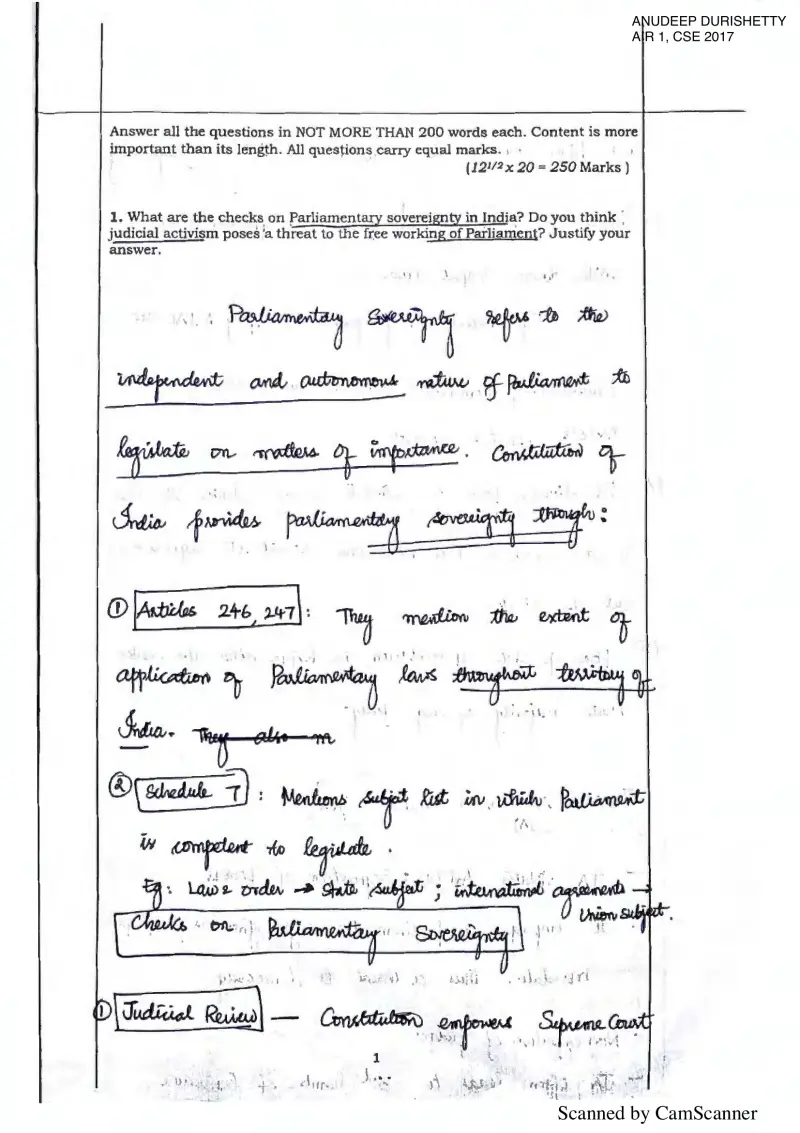 ANUDEEP DURISHETTY
AIR 1, CSE 2017
Answer all the questions in NOT MORE THAN 200 words each. Content is more
important than its length. All questions carry equal marks.
(12 1/2 x 20 = 250 Marks )
1. What are the checks on Parliamentary sovereignty in India? Do you think
judicial activism poses a threat to the free working of Parliament? Justify your
answer.
Parliamentary Sovereignty refers to the
independent and autonomous nature of Parliament to
legislate on matters of importance. Constitution of
India provides parliamentary sovereignty through:
① Articles 246, 247 : They mention the extent of
application of Parliamentary laws throughout territory of
India. They also m
② Schedule 7 : Mentions subject list in which Parliament
is competent to legislate.
Eg: Law & order → State subject ; international agreements →
Union subject.
Checks on Parliamentary Sovereignty
① Judicial Review — Constitution empowers Supreme Court
1
Scanned by CamScanner